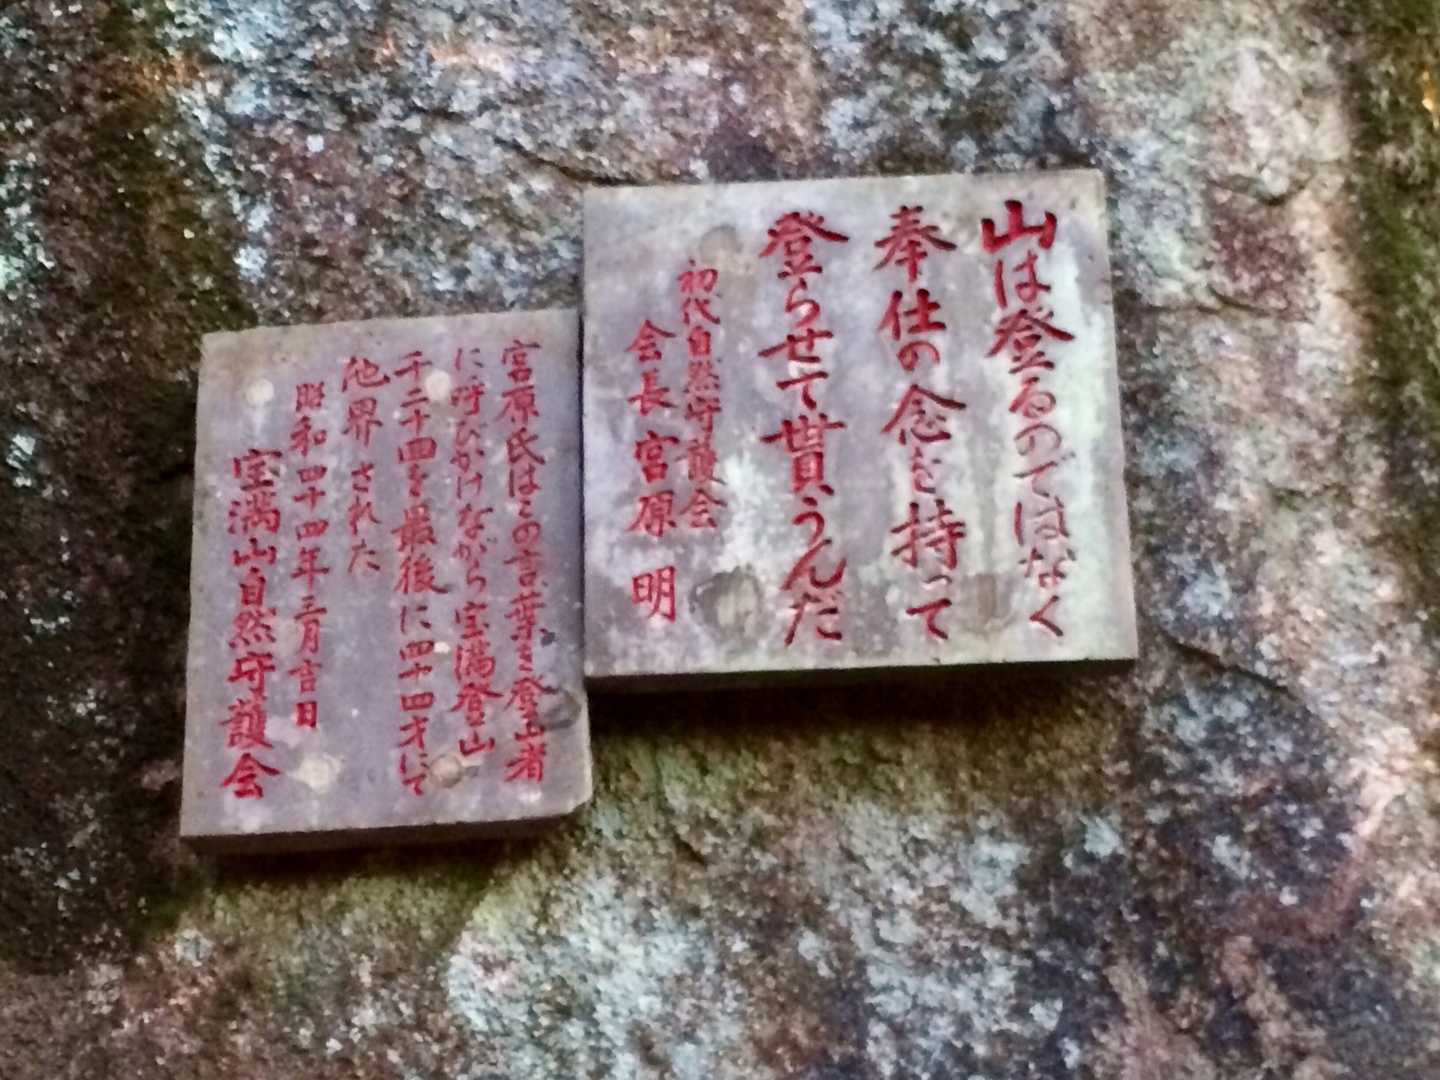 山は登るのではなく
奉仕の念を持って
登らせて貰うんだ
初代自然守護会
会長宮原 明
宮原氏はこの言葉を登山者
に呼びかけながら宝満登山
千二十四を最後に四十四才にて
他界された
昭和四十四年三月吉日
宝満山自然守護会